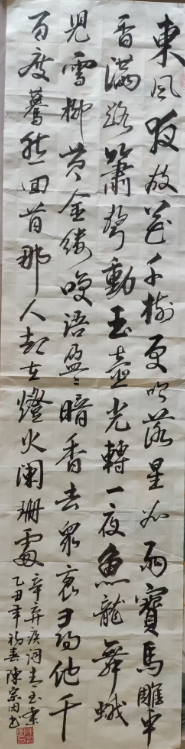 東風夜放花千樹更吹落星如雨寶馬雕車
香滿路簫聲動玉壺光轉一夜魚龍舞蛾
兒雪柳黃金縷笑語盈盈暗香去眾裏尋他千
百度驀然回首那人却在燈火闌珊處
辛弃疾词青玉案
乙丑年初春陳宗